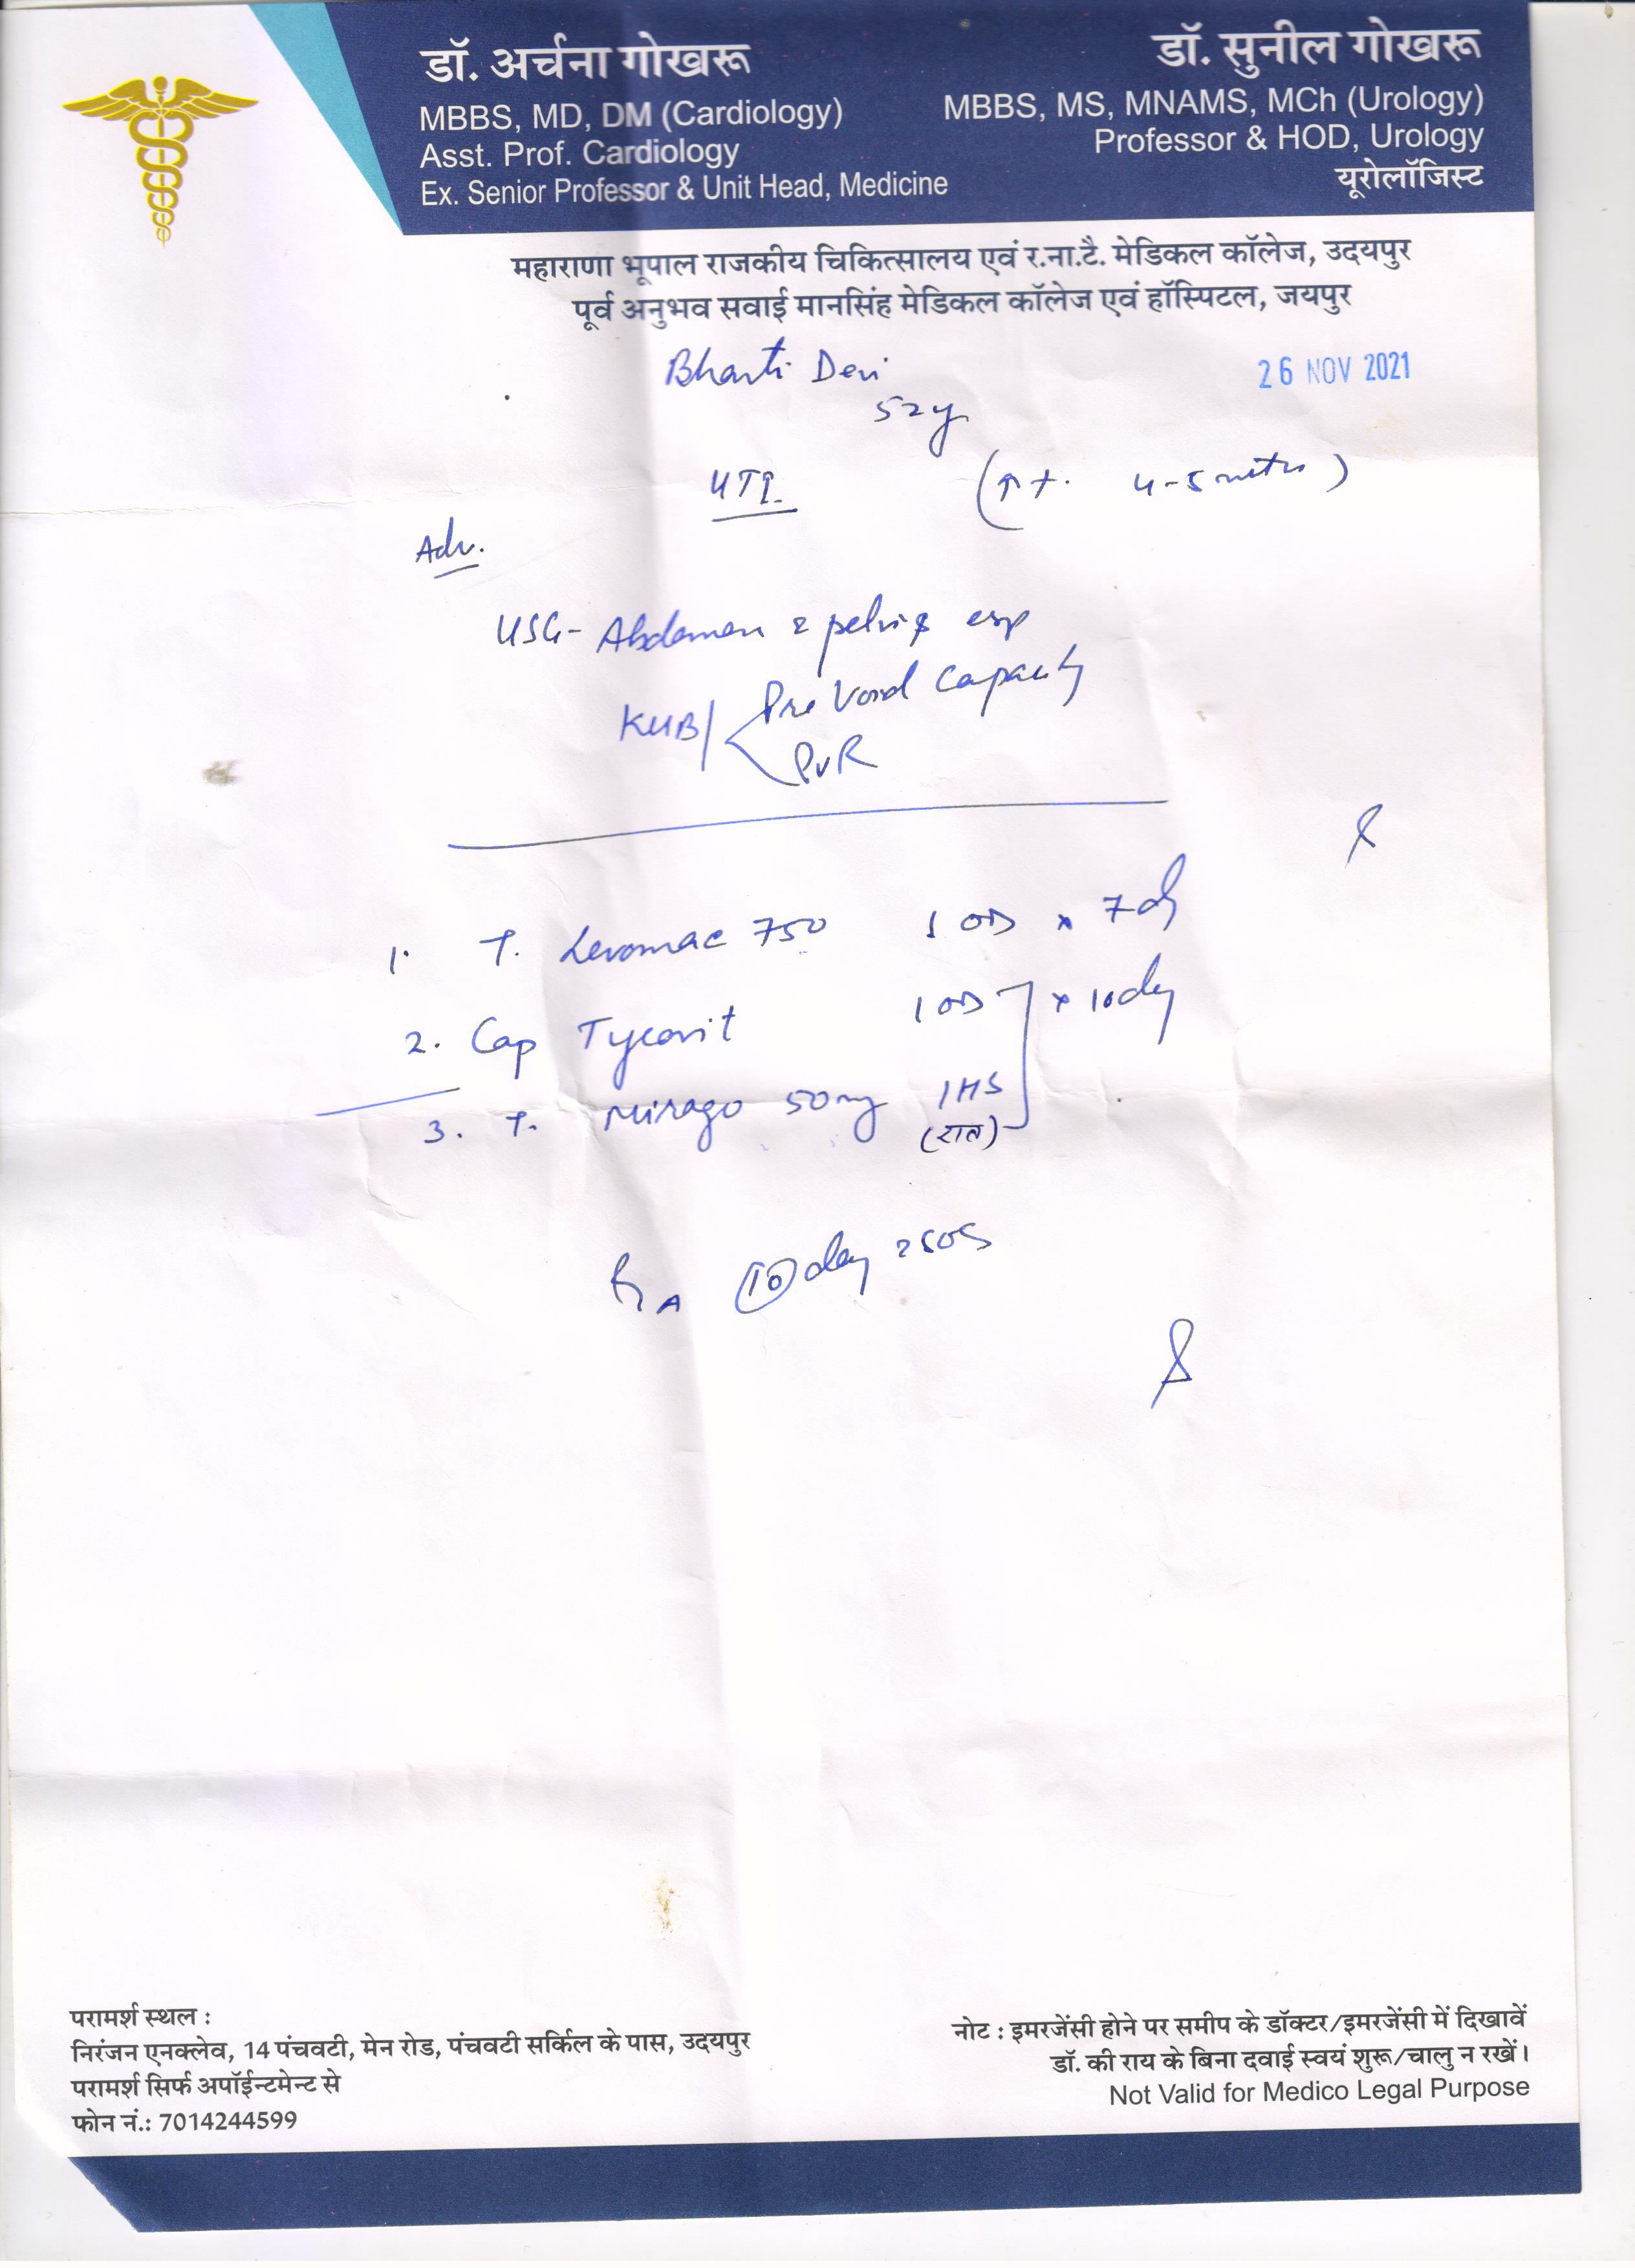 डॉ. अर्चना गोखरू
MBBS, MD, DM (Cardiology)
Asst. Prof. Cardiology
Ex. Senior Professor & Unit Head, Medicine
डॉ. सुनील गोखरू
MBBS, MS, MNAMS, MCh (Urology)
Professor & HOD, Urology
यूरोलॉजिस्ट
महाराणा भूपाल राजकीय चिकित्सालय एवं र.ना.टै. मेडिकल कॉलेज, उदयपुर
पूर्व अनुभव सवाई मानसिंह मेडिकल कॉलेज एवं हॉस्पिटल, जयपुर
Bharti Devi
26 NOV 2021
52y
UTI
Adv.
USG- Abdomen & pelvis esp
KUB/ Pre Void Capacity
PVR
1. T. Levomac 750 1 OD x 7d
2. Cap Tycovit 1 OD x 10day
3. T. Mirago 50mg 1HS
(रात)
10 day SOS
परामर्श स्थल :
निरंजन एनक्लेव, 14 पंचवटी, मेन रोड, पंचवटी सर्किल के पास, उदयपुर
परामर्श सिर्फ अपॉईन्टमेन्ट से
फोन नं.: 7014244599
नोट : इमरजेंसी होने पर समीप के डॉक्टर/इमरजेंसी में दिखावें
डॉ. की राय के बिना दवाई स्वयं शुरू/चालु न रखें।
Not Valid for Medico Legal Purpose